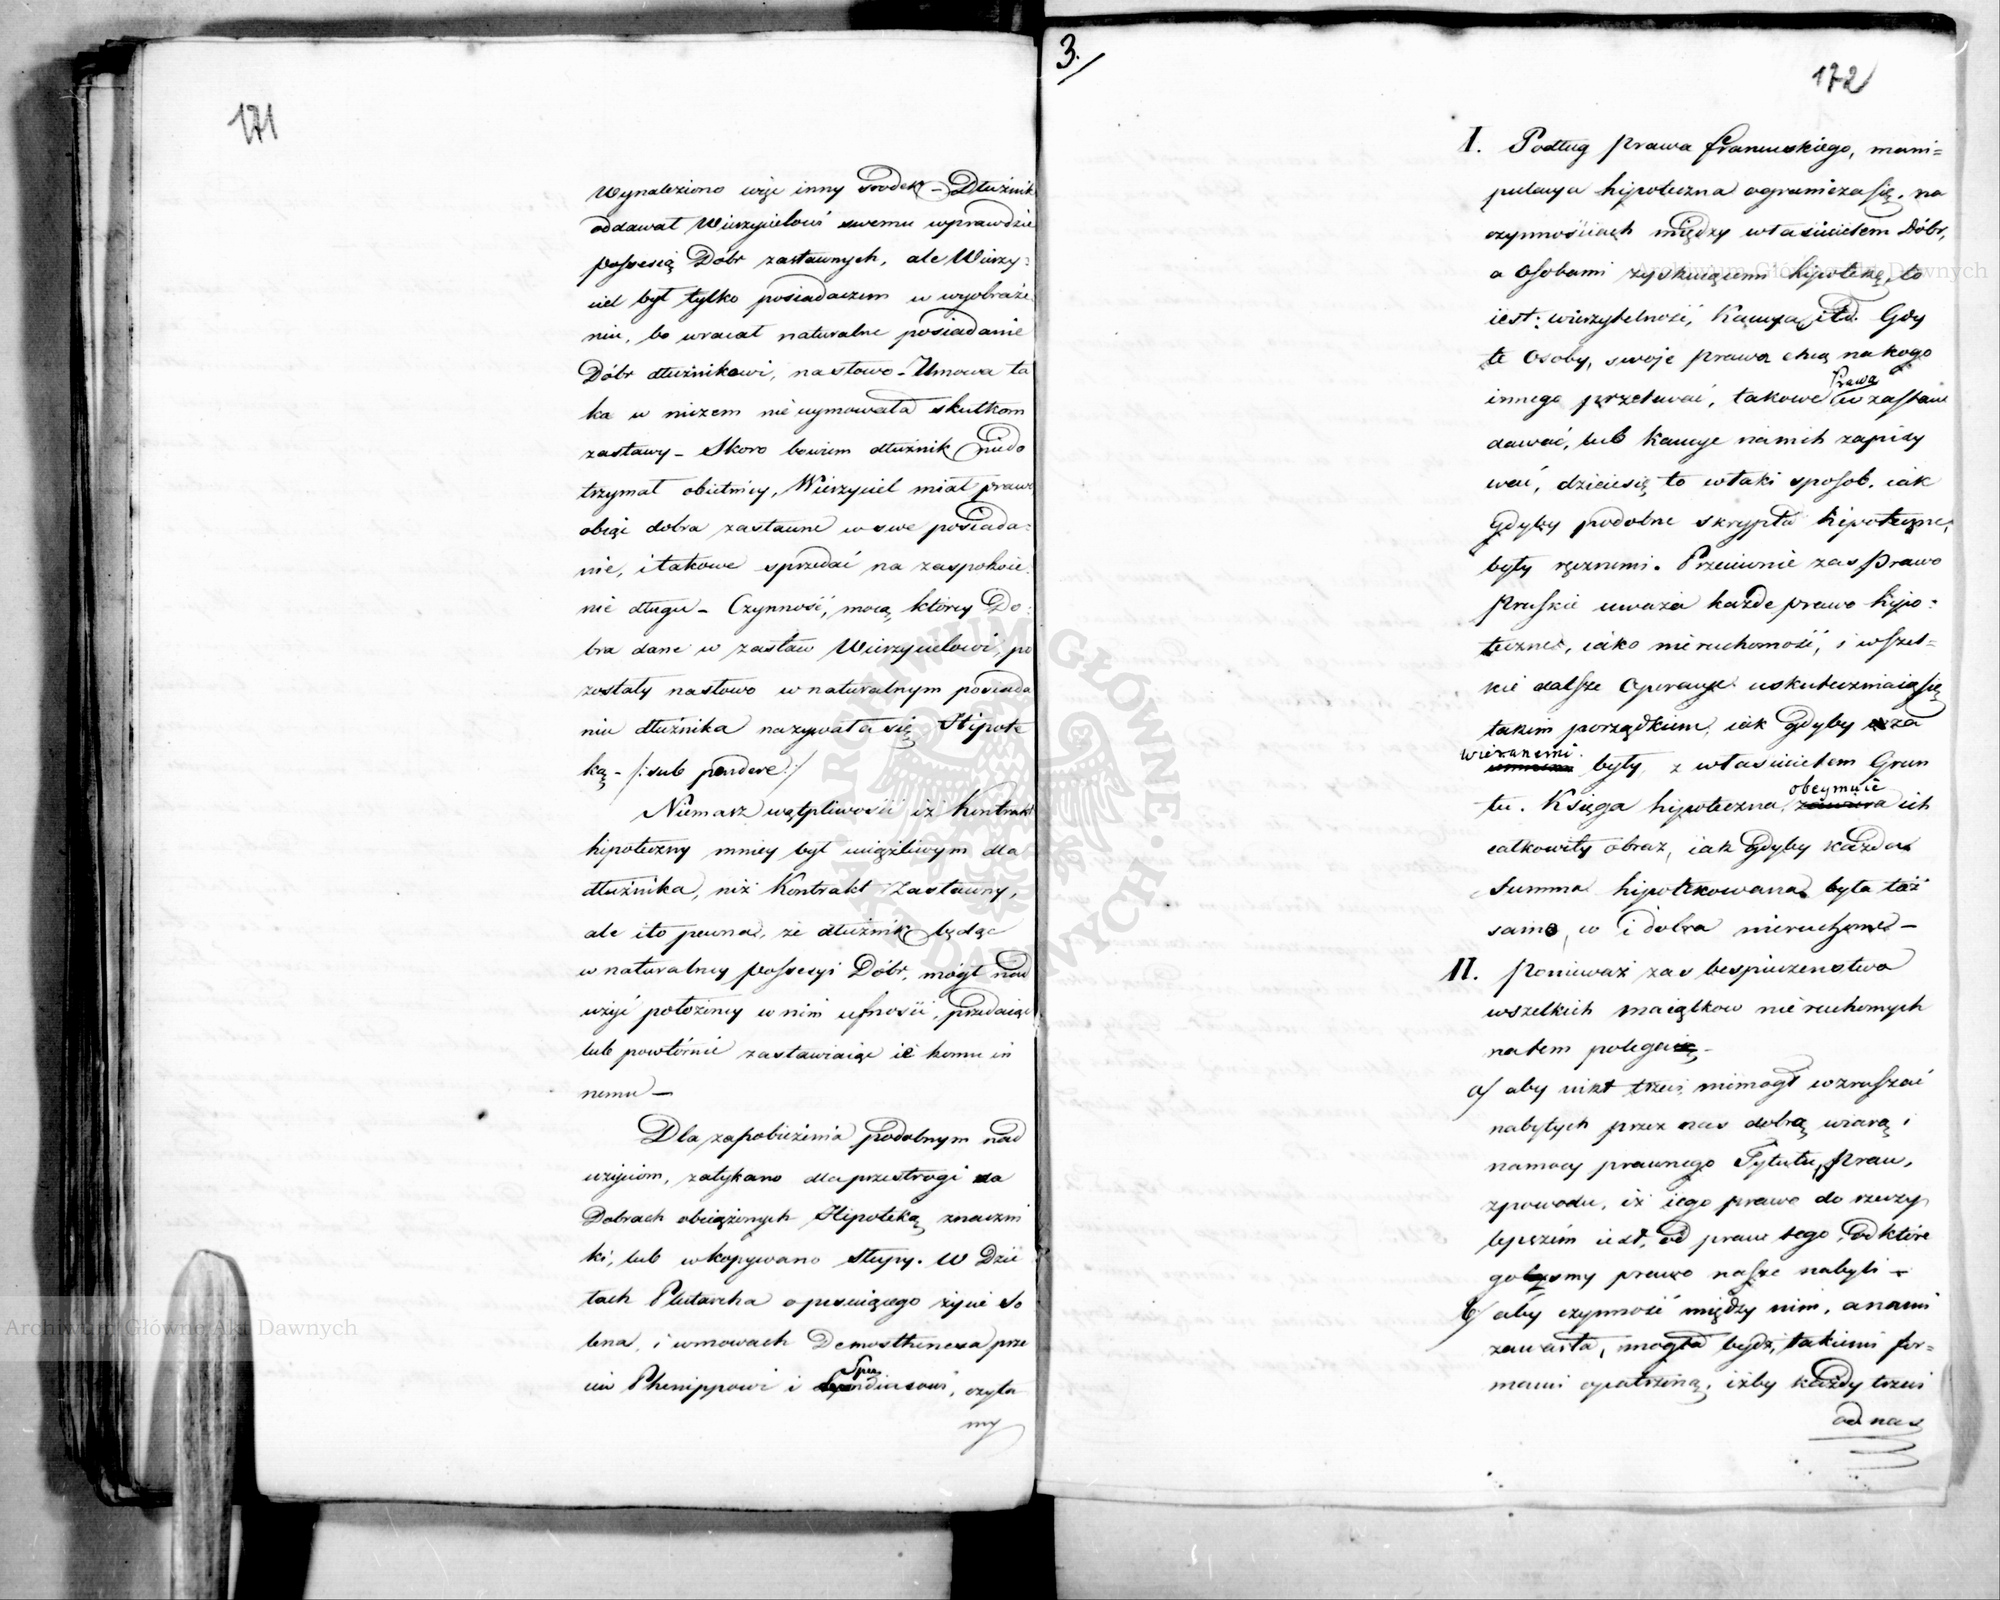 171
Wynaleziono więc inny srodek – Dłużnik
oddawał Wierzycielowi swemu wprawdzie
possessią Dóbr zastawnych, ale Wierzy:
ciel był tylko posiadaczem w wyobraże
niu, bo wracał naturalne posiadanie
Dóbr dłużnikowi, na słowo – Umowa ta
ka w niczem nie uymowała skutkom
zastawy – Skoro bowiem dłużnik niedo
trzymał obietnicy, Wierzyciel miał prawo
obiąć dobra zastawne w swe posiada:
nie, i takowe sprzedać na zaspokoie:
nie długu – Czynność, mocą, którey Do:
bra dane w zastaw Wierzycielowi, po
zostały na słowo w naturalnym posiada
niu dłużnika nazywała się Hipote
ką – /:sub pondere:/
Niemasz wątpliwości iż Kontrakt
hipoteczny mniey był uciążliwym dla
dłużnika, niż Kontrakt Zastawny,
ale i to pewna, że dłużnik będąc
w naturalney possessyi Dóbr, mógł nad
użyć położoney w nim ufności, przedaiąc
lub powtórnie zastawiaiąc ie komu in
nemu –
Dla zapobieżenia podobnym nad
użyciom, zatykano dla przestrogi na
Dobrach obciążonych Hipoteką znaczni
ki, lub wkopywano słupy. W Dzie
łach Plutarcha opisuiącego życie So
lona, i w mowach Demosthenesa prze
ciw Phenippowi i Spudiasowi, czyta
my
3./
172
I. Podług prawa francuskiego, mani=
pulacya hipoteczna ogranicza się, na
czynnościach między właścicielem Dóbr,
a Osobami zyskuiącemi hipotekę, to
iest: wierzytelność, Kaucyą itd. Gdy
te Osoby, swoje prawa chcą na kogo
innego przelewać, takowe Prawa w zastaw
dawać, lub kaucye na nich zapisy
wać, dzieie się to w taki sposob, iak
gdyby podobne skrypta hipoteczne,
były ręcznemi. Przeciwnie zas Prawo
Pruskie uważa każde prawo hipo:
teczne, iako nieruchomość, i wszel=
kie dalsze Operacye uskuteczniaią się
takim porządkiem, iak gdyby za
wieranemi były, z właścicielem Grun
tu. Księga hipoteczna obeymuie ich
całkowity obraz, iak gdyby każda
Summa hipotekowana była taż
samo, co i dobra nieruchome –
II. Ponieważ zas bespieczenstwo
wszelkich maiątkow nieruchomych
na tem polega –
a/ aby nikt trzeci, niemogł wzruszać
nabytych przez nas dobrą wiarą i
na mocy prawnego Tytułu, Praw,
z powodu, iż iego prawo do rzeczy
lepszém iest, od praw tego, od które
gosmy prawo nasze nabyli –
b/ aby czynność między nim, a nami
zawarta, mogła bydź, takiemi for=
mami opatrzoną, iżby każdy trzeci
od nas
Archiwum Główne Akt Dawnych
Archiwum Główne Akt Dawnych
ARCHIWUM GŁÓWNE AKT DAWNYCH